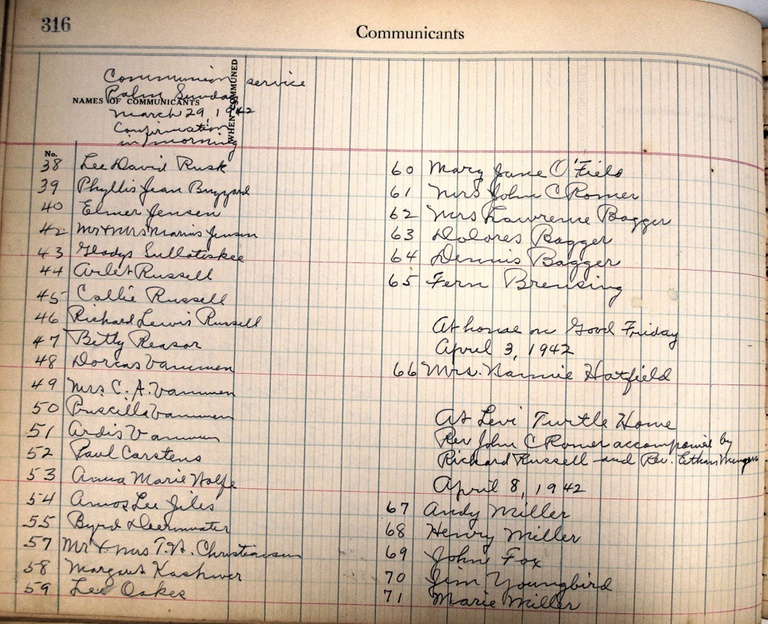 316
Communicants
Communion service
Palm Sunday
NAMES OF COMMUNICANTS
WHEN COMMUNED
March 29, 1942
Confirmation
in morning
No.
38 Lee David Rusk
39 Phyllis Jean Buzzard
40 Elmer Jensen
42 Mr & Mrs Marius Jensen
43 Gladys
44 Arlet Russell
45 Callie Russell
46 Richard Lewis Russell
47 Betty Reasor
48 Dorcas Vammen
49 Mrs. C. A. Vammen
50 Priscilla Vammen
51 Ardis Vammen
52 Paul Carstens
53 Anna Marie Wolfe
54 Amos Lee Giles
55 Byrd
57 Mr & Mrs T. A. Christiansen
58 Margaret
59 Lee Oakes
60 Mary Jane O'Field
61 Mrs John C Romer
62 Mrs Lawrence Bagger
63 Dolores Bagger
64 Dennis Bagger
65 Fern Brensing
At house on Good Friday
April 3, 1942
66 Mrs. Nannie Hatfield
At Levi Turtle Home
Rev John C Romer accompanied by
Richard Russell and Rev.
April 8, 1942
67 Andy Miller
68 Henry Miller
69 John Fox
70 Jim Youngbird
71 Marie Miller